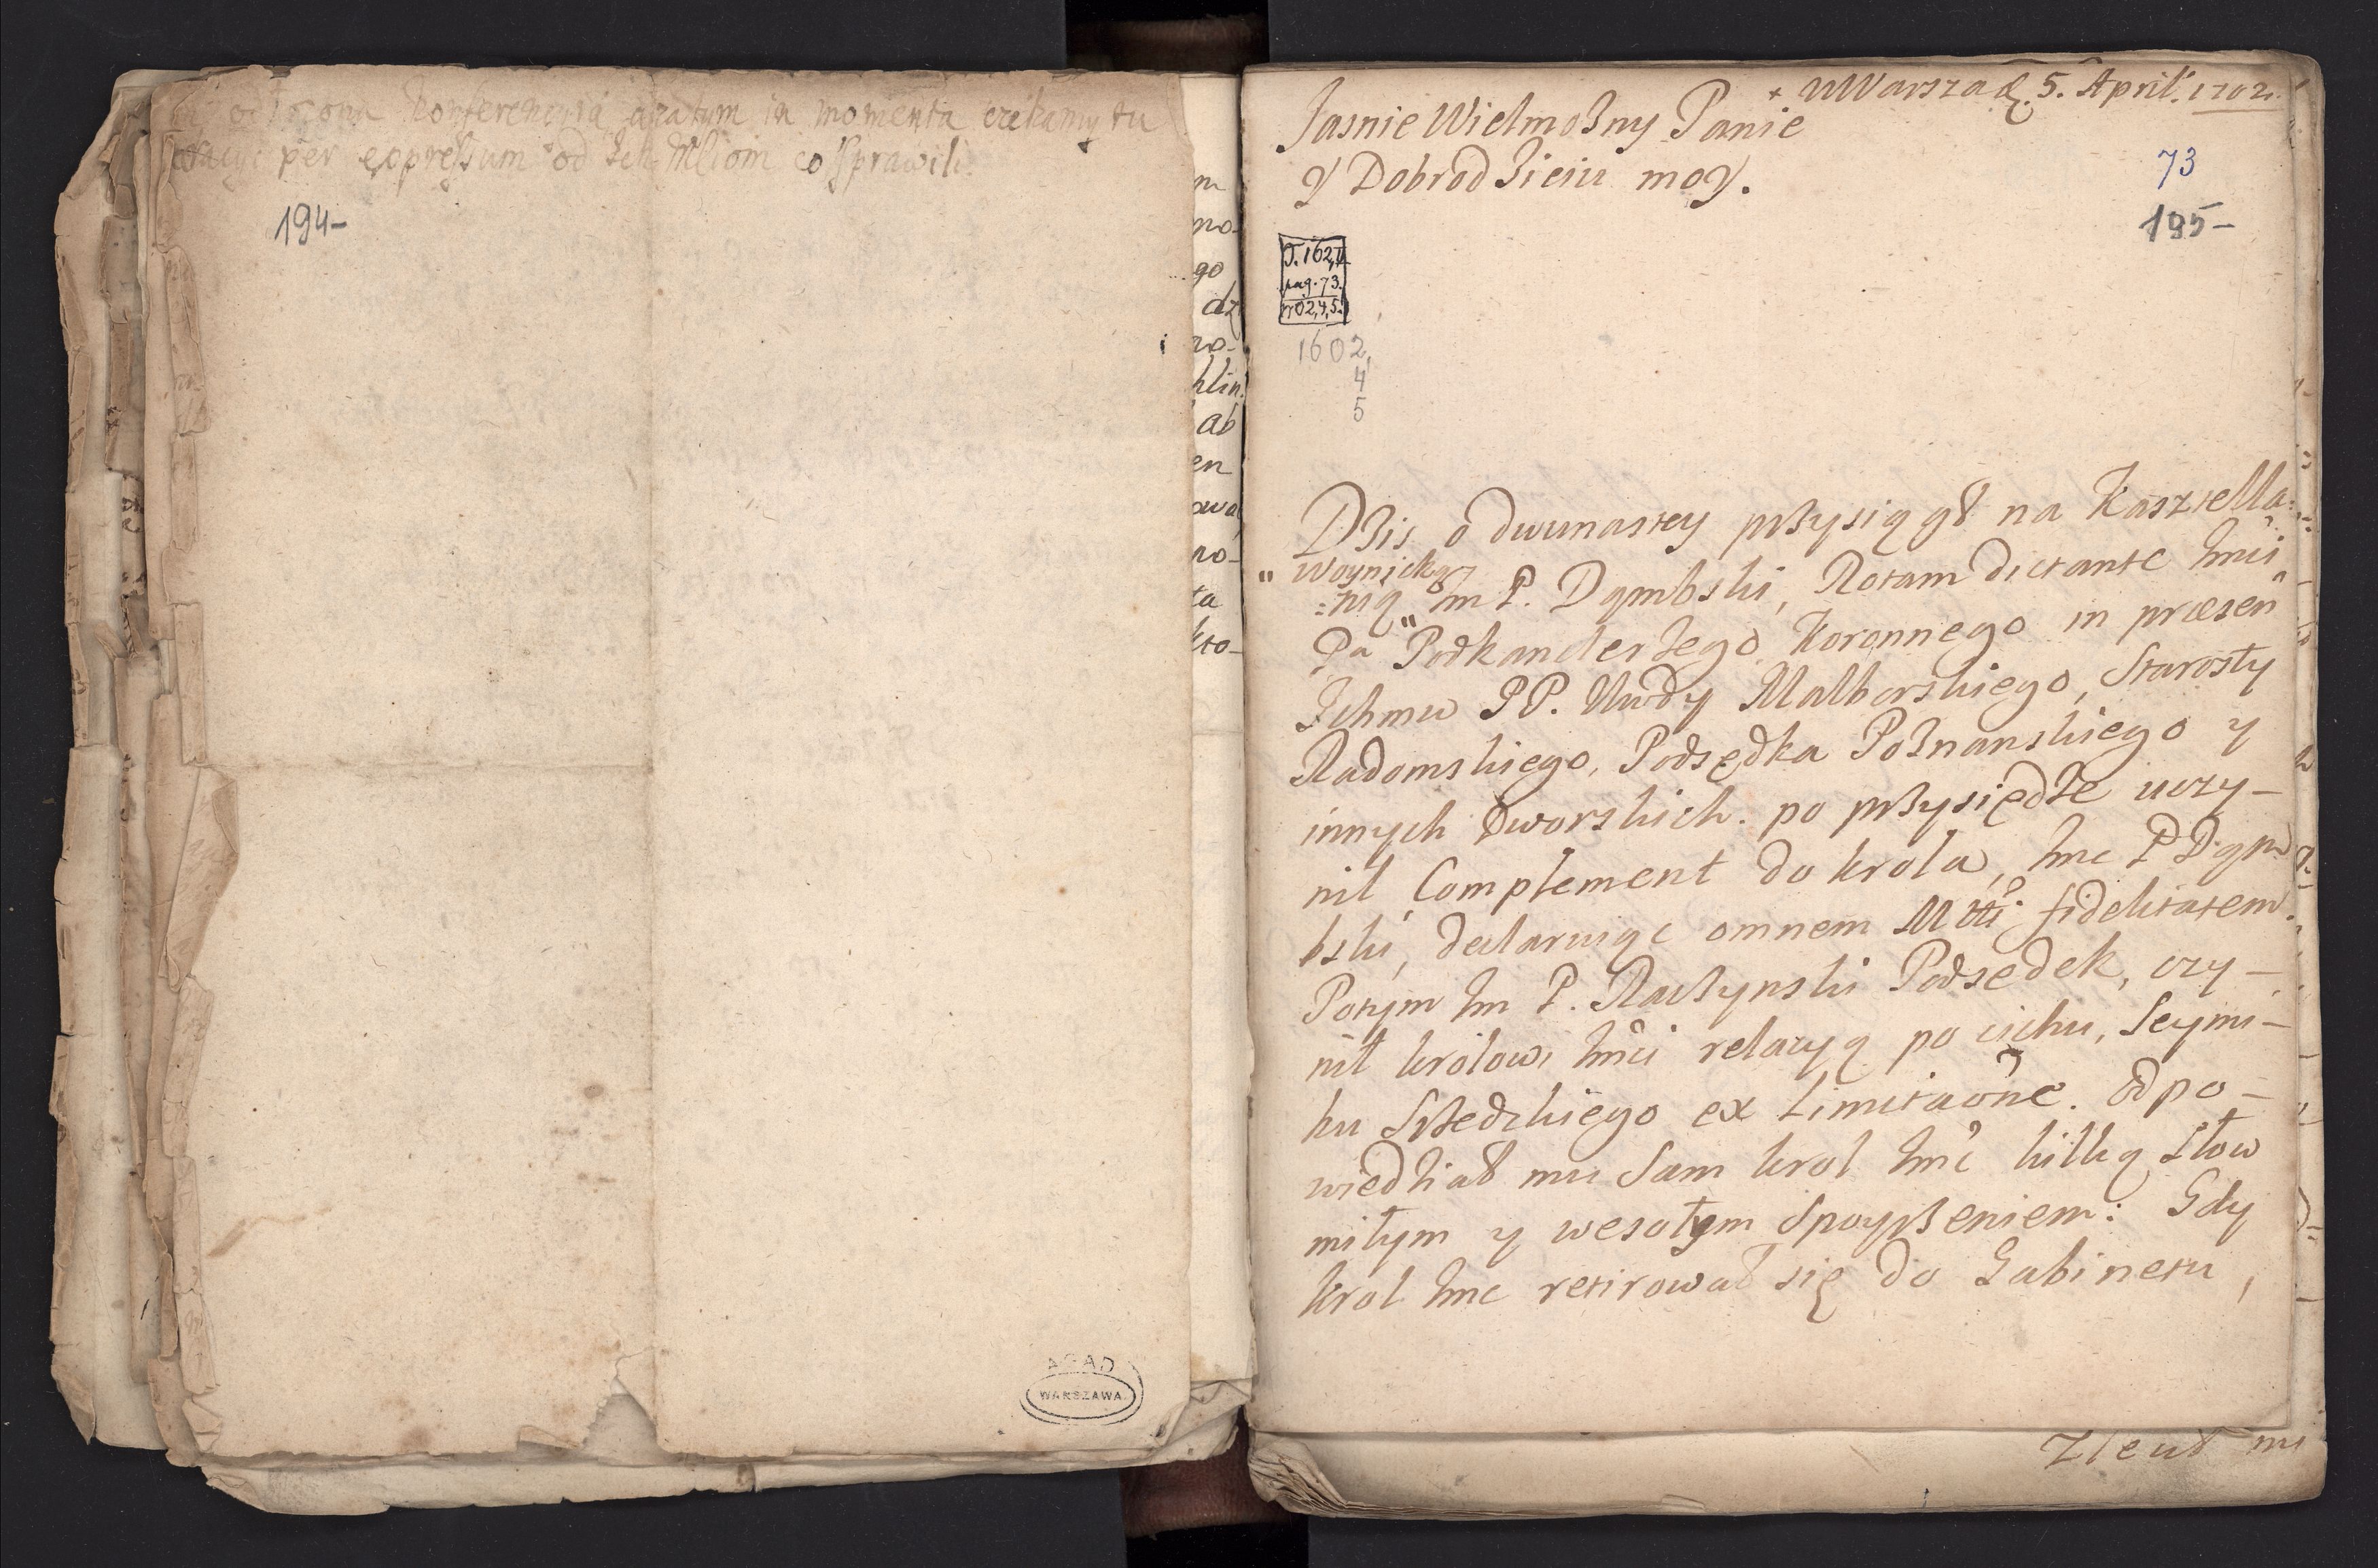 odłożona konferencyia azatym in momenta czekamy tu
per expressum od Ich Mściom co sprawili.
194-
AGAD
WARSZAWA
m
no-
go
dz
ro-
hlin
ab
en
owa
no-
ta
kro-
+ w Warsza d. 5. April. 1702.
Jasnie Wielmożny Panie
y Dobrodzieiu moy.
73
195-
T. 162,II
pag. 73.
nro 2,4,5.
1602,
4
5
Dzis o dwunastey przysiągł na Kasztella:
" Woynicką
:nią " Im P. Dąmbski, Rotam dictante Imći
Pa Podkanclerzego Koronnego in præsen
Ichmw PP. Wwdy Malborskiego, Starosty
Radomskiego, Podsędka Poznanskiego y
innych Dworskich. po przysiędze uczy-
nił Complement do krola, Imc P Dąm
bski, declaruiąc omnem fidelitatem.
Potym Im P. Raczynski Podsedek, czy-
nił krolowi Imći relacyą po cichu, Seymi-
ku Szredzkiego ex Limitaōne. odpo-
wiedział mu Sam krol Imć kilką słow
miłym y wesołym Spoyrzeniem: Gdy
krol Imc retirował się do Gabinetu,
Zlecił mi